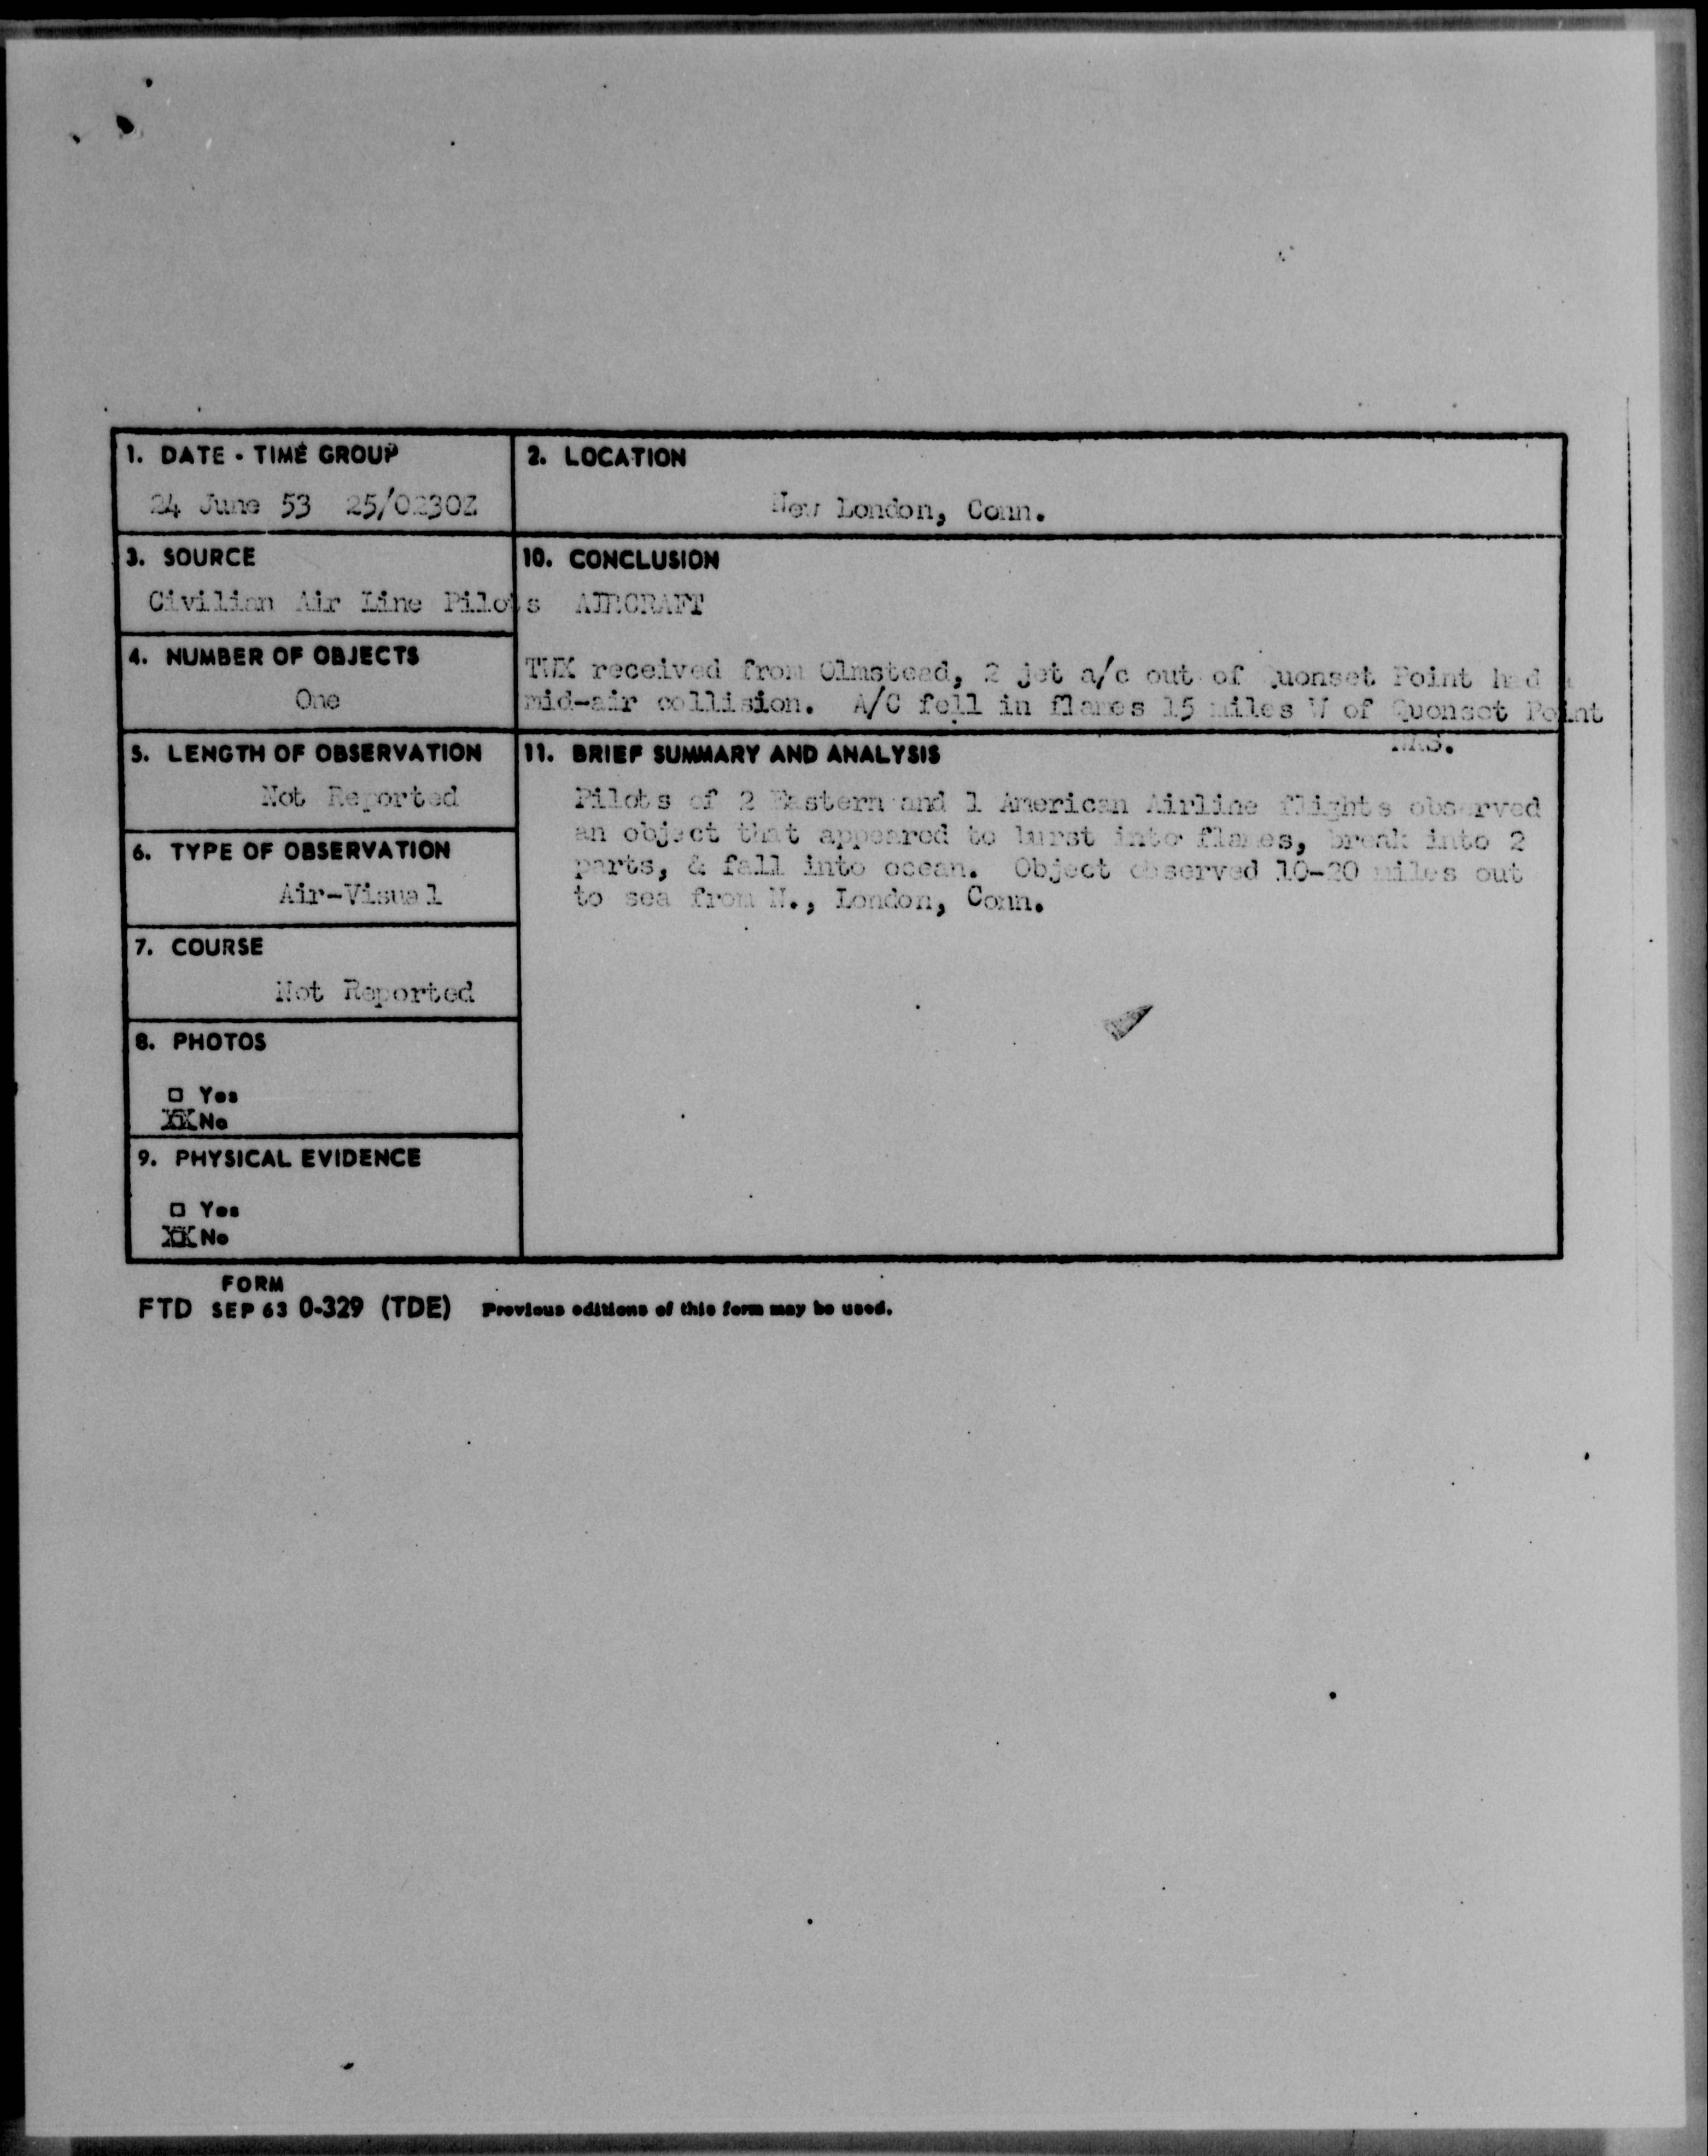 1. DATE - TIME GROUP
24 June 53 25/0230Z
2. LOCATION
New London, Conn.
3. SOURCE
Civilian Air Line Pilots
10. CONCLUSION
AIRCRAFT
TWX received from Olmstead, 2 jet a/c out of Quonset Point had a
mid-air collision. A/C fell in flames 15 miles W of Quonset Point
NAS.
4. NUMBER OF OBJECTS
One
5. LENGTH OF OBSERVATION
Not Reported
11. BRIEF SUMMARY AND ANALYSIS
Pilots of 2 Eastern and 1 American Airline flights observed
an object that appeared to burst into flames, break into 2
parts, & fall into ocean. Object observed 10-20 miles out
to sea from N., London, Conn.
6. TYPE OF OBSERVATION
Air-Visual
7. COURSE
Not Reported
8. PHOTOS
□ Yes
XX No
9. PHYSICAL EVIDENCE
□ Yes
XX No
FORM
FTD SEP 63 0-329 (TDE) Previous editions of this form may be used.